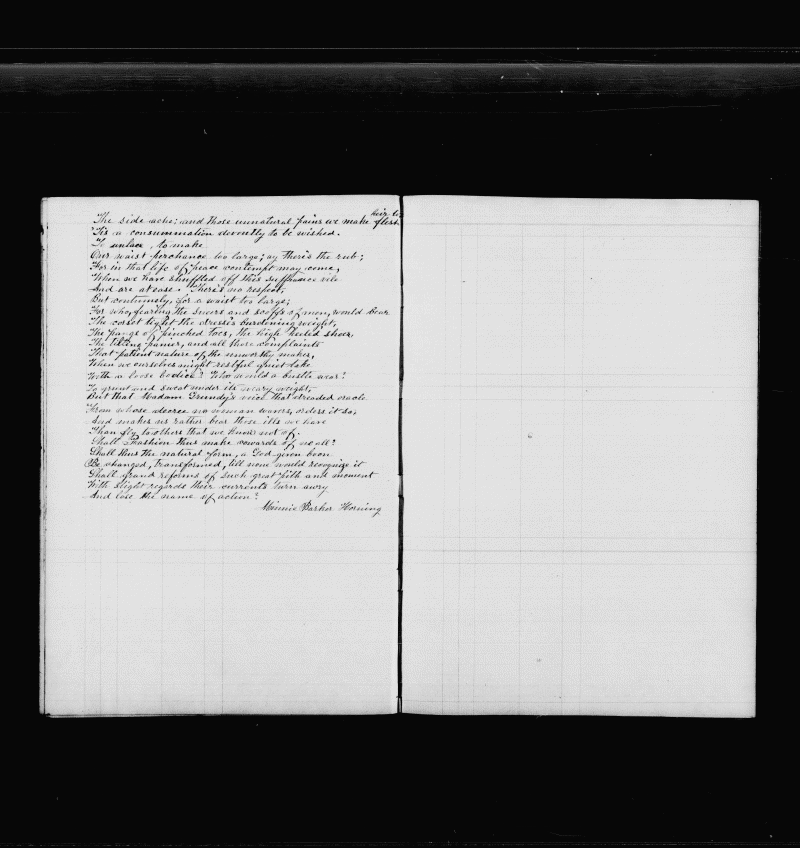 The side ache; and those unnatural pains we make flesh
heir to,
'Tis a consummation devoutly to be wished.
To unlace, to make
Our waist perchance too large; ay there's the rub;
For in that life of peace contempt may come,
When we have shuffled off this suffrance vile
And are at ease. There's no respect,
But contumely, for a waist too large;
For who, fearing the sneers and scoffs of men, would bear
The corset tight the dress's burdening weight,
The pangs of pinched toes, the high heeled shoes,
The tilting panier, and all those complaints
That patient nature of the unworthy makes,
When we ourselves might restful quiet take
With a loose bodice? Who would a bustle wear?
To grunt and sweat under its weary weight,
But that Madam Grundy's voice that dreaded oracle
From whose decree no woman waves, orders it so,
And makes us rather bear those ills we have
Than fly to others that we know not of.
Shall Fashion thus make cowards of us all?
Shall thus the natural form, a God given boon
Be changed, transformed, till none would recognize it
Shall grand reforms of such great pith and moment
With slight regards their currents turn awry
And lose the name of action?
Minnie Barker Horning